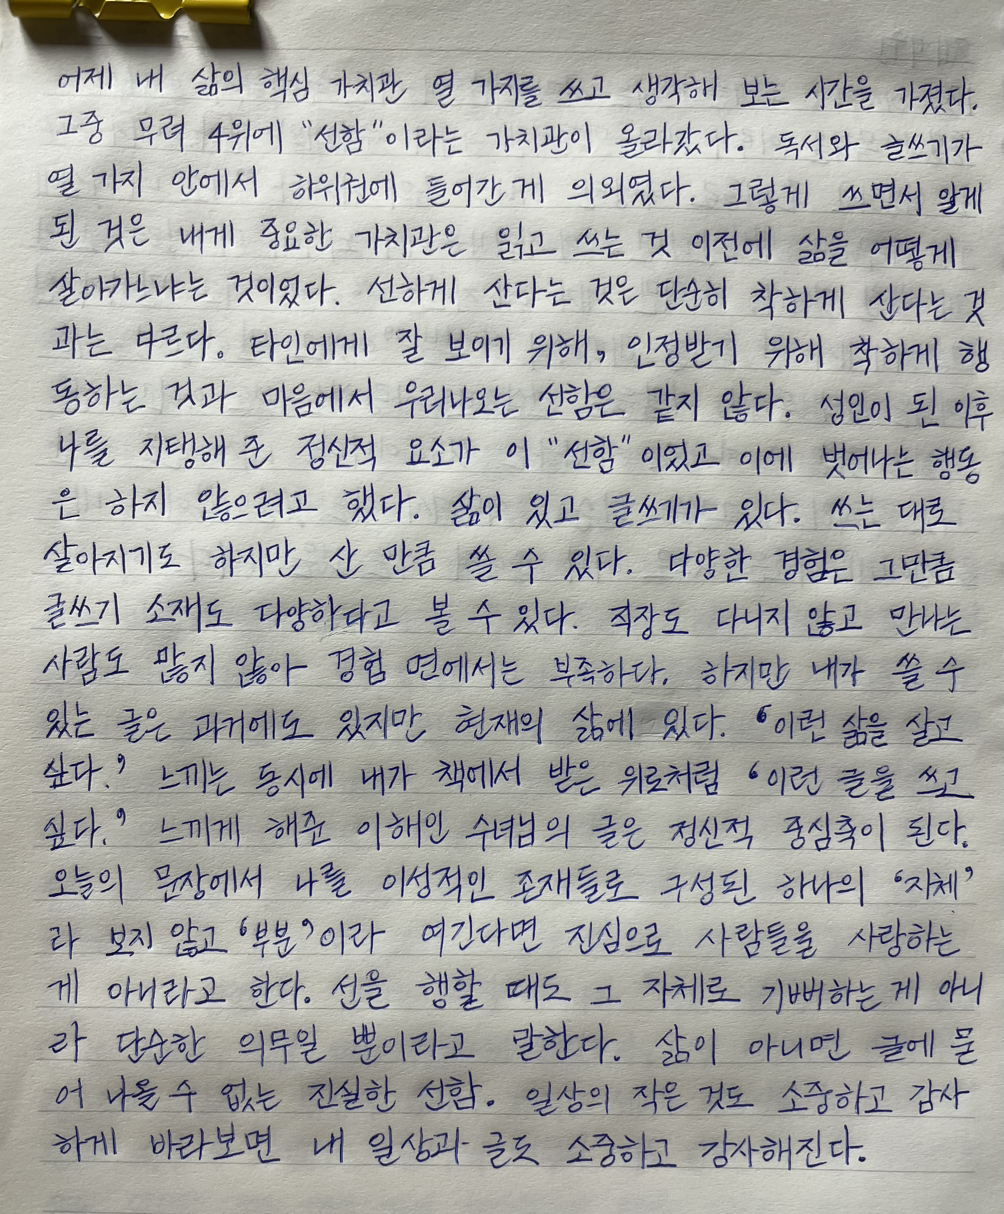 어제 내 삶의 핵심 가치관 열 가지를 쓰고 생각해 보는 시간을 가졌다.
그중 무려 4위에 "선함"이라는 가치관이 올라갔다. 독서와 글쓰기가
열 가지 안에서 하위권에 들어간 게 의외였다. 그렇게 쓰면서 알게
된 것은 내게 중요한 가치관은 읽고 쓰는 것 이전에 삶을 어떻게
살아가느냐는 것이었다. 선하게 산다는 것은 단순히 착하게 산다는 것
과는 다르다. 타인에게 잘 보이기 위해, 인정받기 위해 착하게 행
동하는 것과 마음에서 우러나오는 선함은 같지 않다. 성인이 된 이후
나를 지탱해 준 정신적 요소가 이 "선함"이었고 이에 벗어나는 행동
은 하지 않으려고 했다. 삶이 있고 글쓰기가 있다. 쓰는 대로
살아지기도 하지만 산 만큼 쓸 수 있다. 다양한 경험은 그만큼
글쓰기 소재도 다양하다고 볼 수 있다. 직장도 다니지 않고 만나는
사람도 많지 않아 경험 면에서는 부족하다. 하지만 내가 쓸 수
있는 글은 과거에도 있지만 현재의 삶에 있다. '이런 삶을 살고
싶다.' 느끼는 동시에 내가 책에서 받은 위로처럼 '이런 글을 쓰고
싶다.' 느끼게 해준 이해인 수녀님의 글은 정신적 중심축이 된다.
오늘의 문장에서 나를 이성적인 존재들로 구성된 하나의 '자체'
라 보지 않고 '부분'이라 여긴다면 진심으로 사람들을 사랑하는
게 아니라고 한다. 선을 행할 때도 그 자체로 기뻐하는 게 아니
라 단순한 의무일 뿐이라고 말한다. 삶이 아니면 글에 묻
어 나올 수 없는 진실한 선함. 일상의 작은 것도 소중하고 감사
하게 바라보면 내 일상과 글도 소중하고 감사해진다.